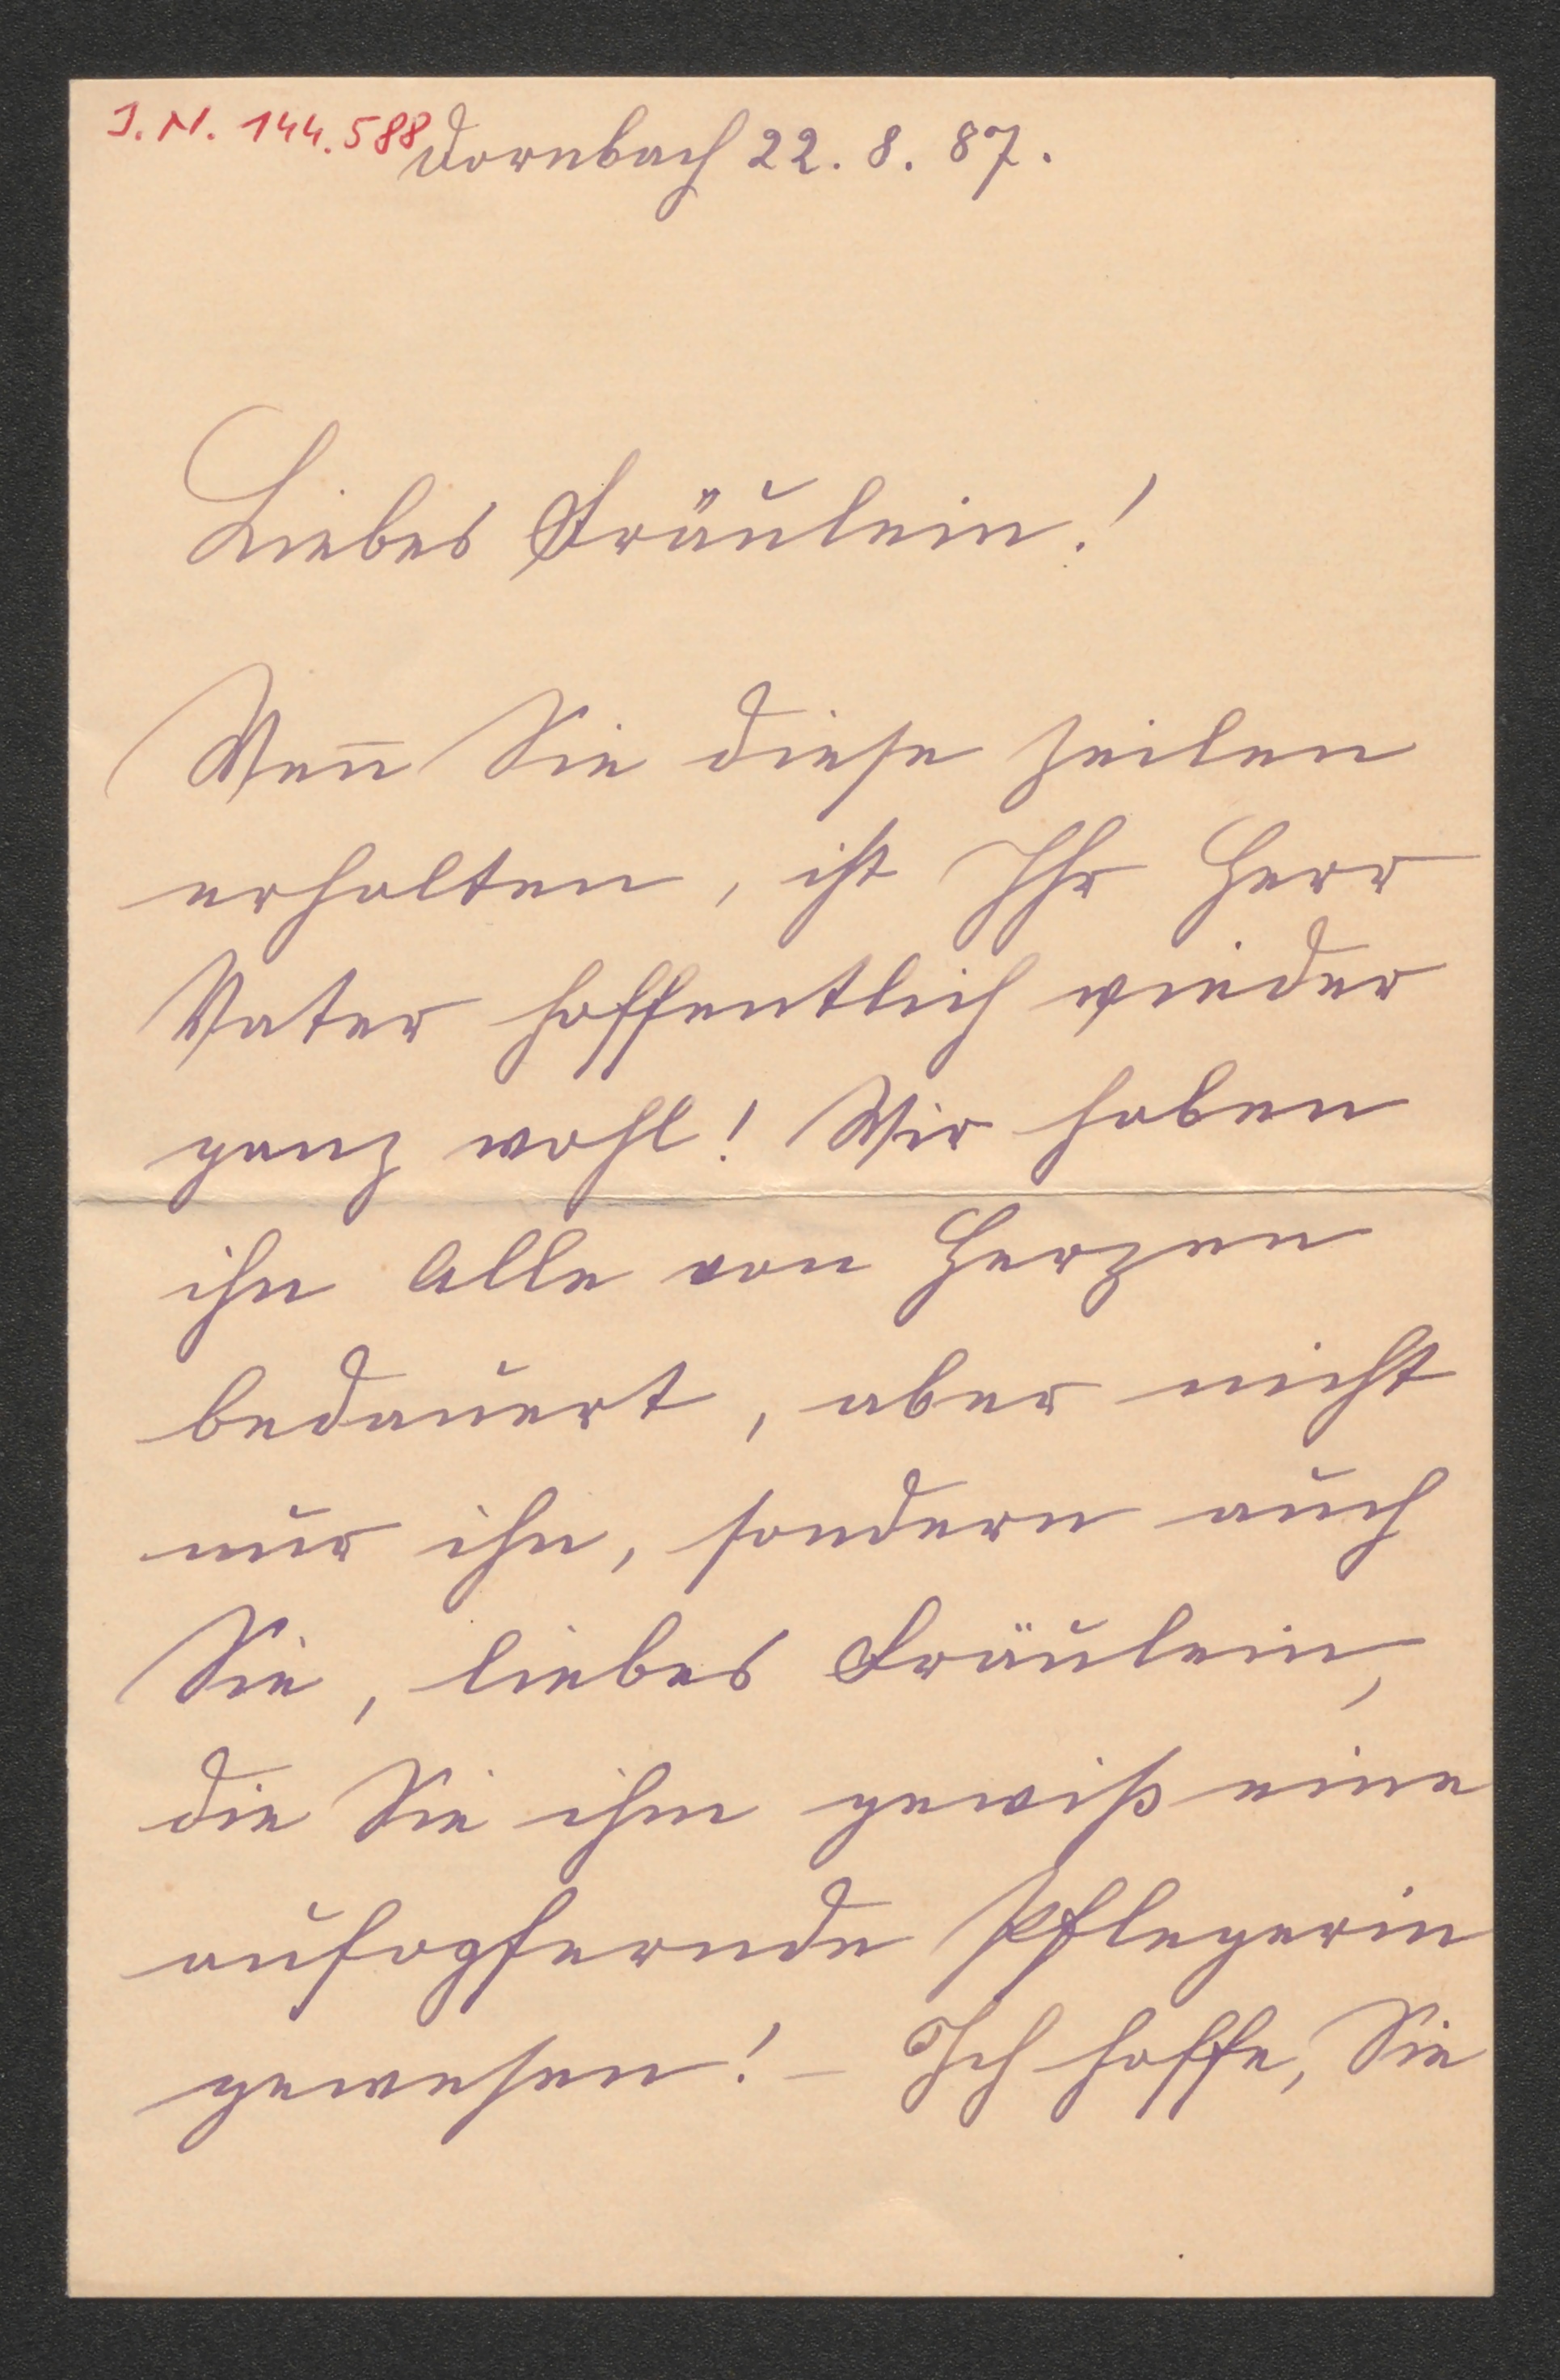 I. N. 144.588
Dornbach 22. 8. 87.
Liebes Fräulein!
Wen̅ Sie diese Zeilen
erhalten, ist Ihr Herr
Vater hoffentlich wieder
ganz wohl! Wir haben
ihn Alle von Herzen
bedauert, aber nicht
nur ihn, sondern auch
Sie, liebes Fräulein,
die Sie ihm gewiß eine
aufopfernde Pflegerin
gewesen! – Ich hoffe, Sie